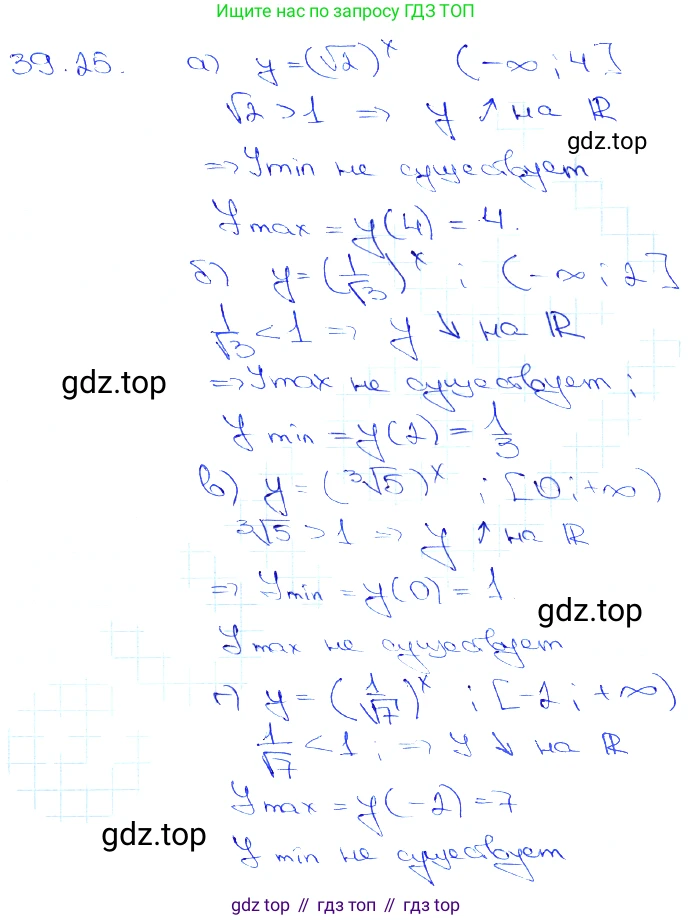 Ищите нас по запросу ГДЗ ТОП
39.25. а) y=(√2)^x (-∞; 4]
√2 > 1 => y ↑ на ℝ
gdz.top
=> y min не существует
y max = y(4) = 4.
б) y=(1/√3)^x ; (-∞; 2]
1/√3 < 1 => y ↓ на ℝ
gdz.top
=> y max не существует;
gdz.top
y min = y(2) = 1/3
в) y=(∛5)^x ; [0; +∞)
∛5 > 1 => y ↑ на ℝ
=> y min = y(0) = 1
gdz.top
y max не существует
г) y=(1/√7)^x ; [-2; +∞)
1/√7 < 1; => y ↓ на ℝ
y max = y(-2) = 7
gdz.top
y min не существует
gdz top // гдз топ // gdz top